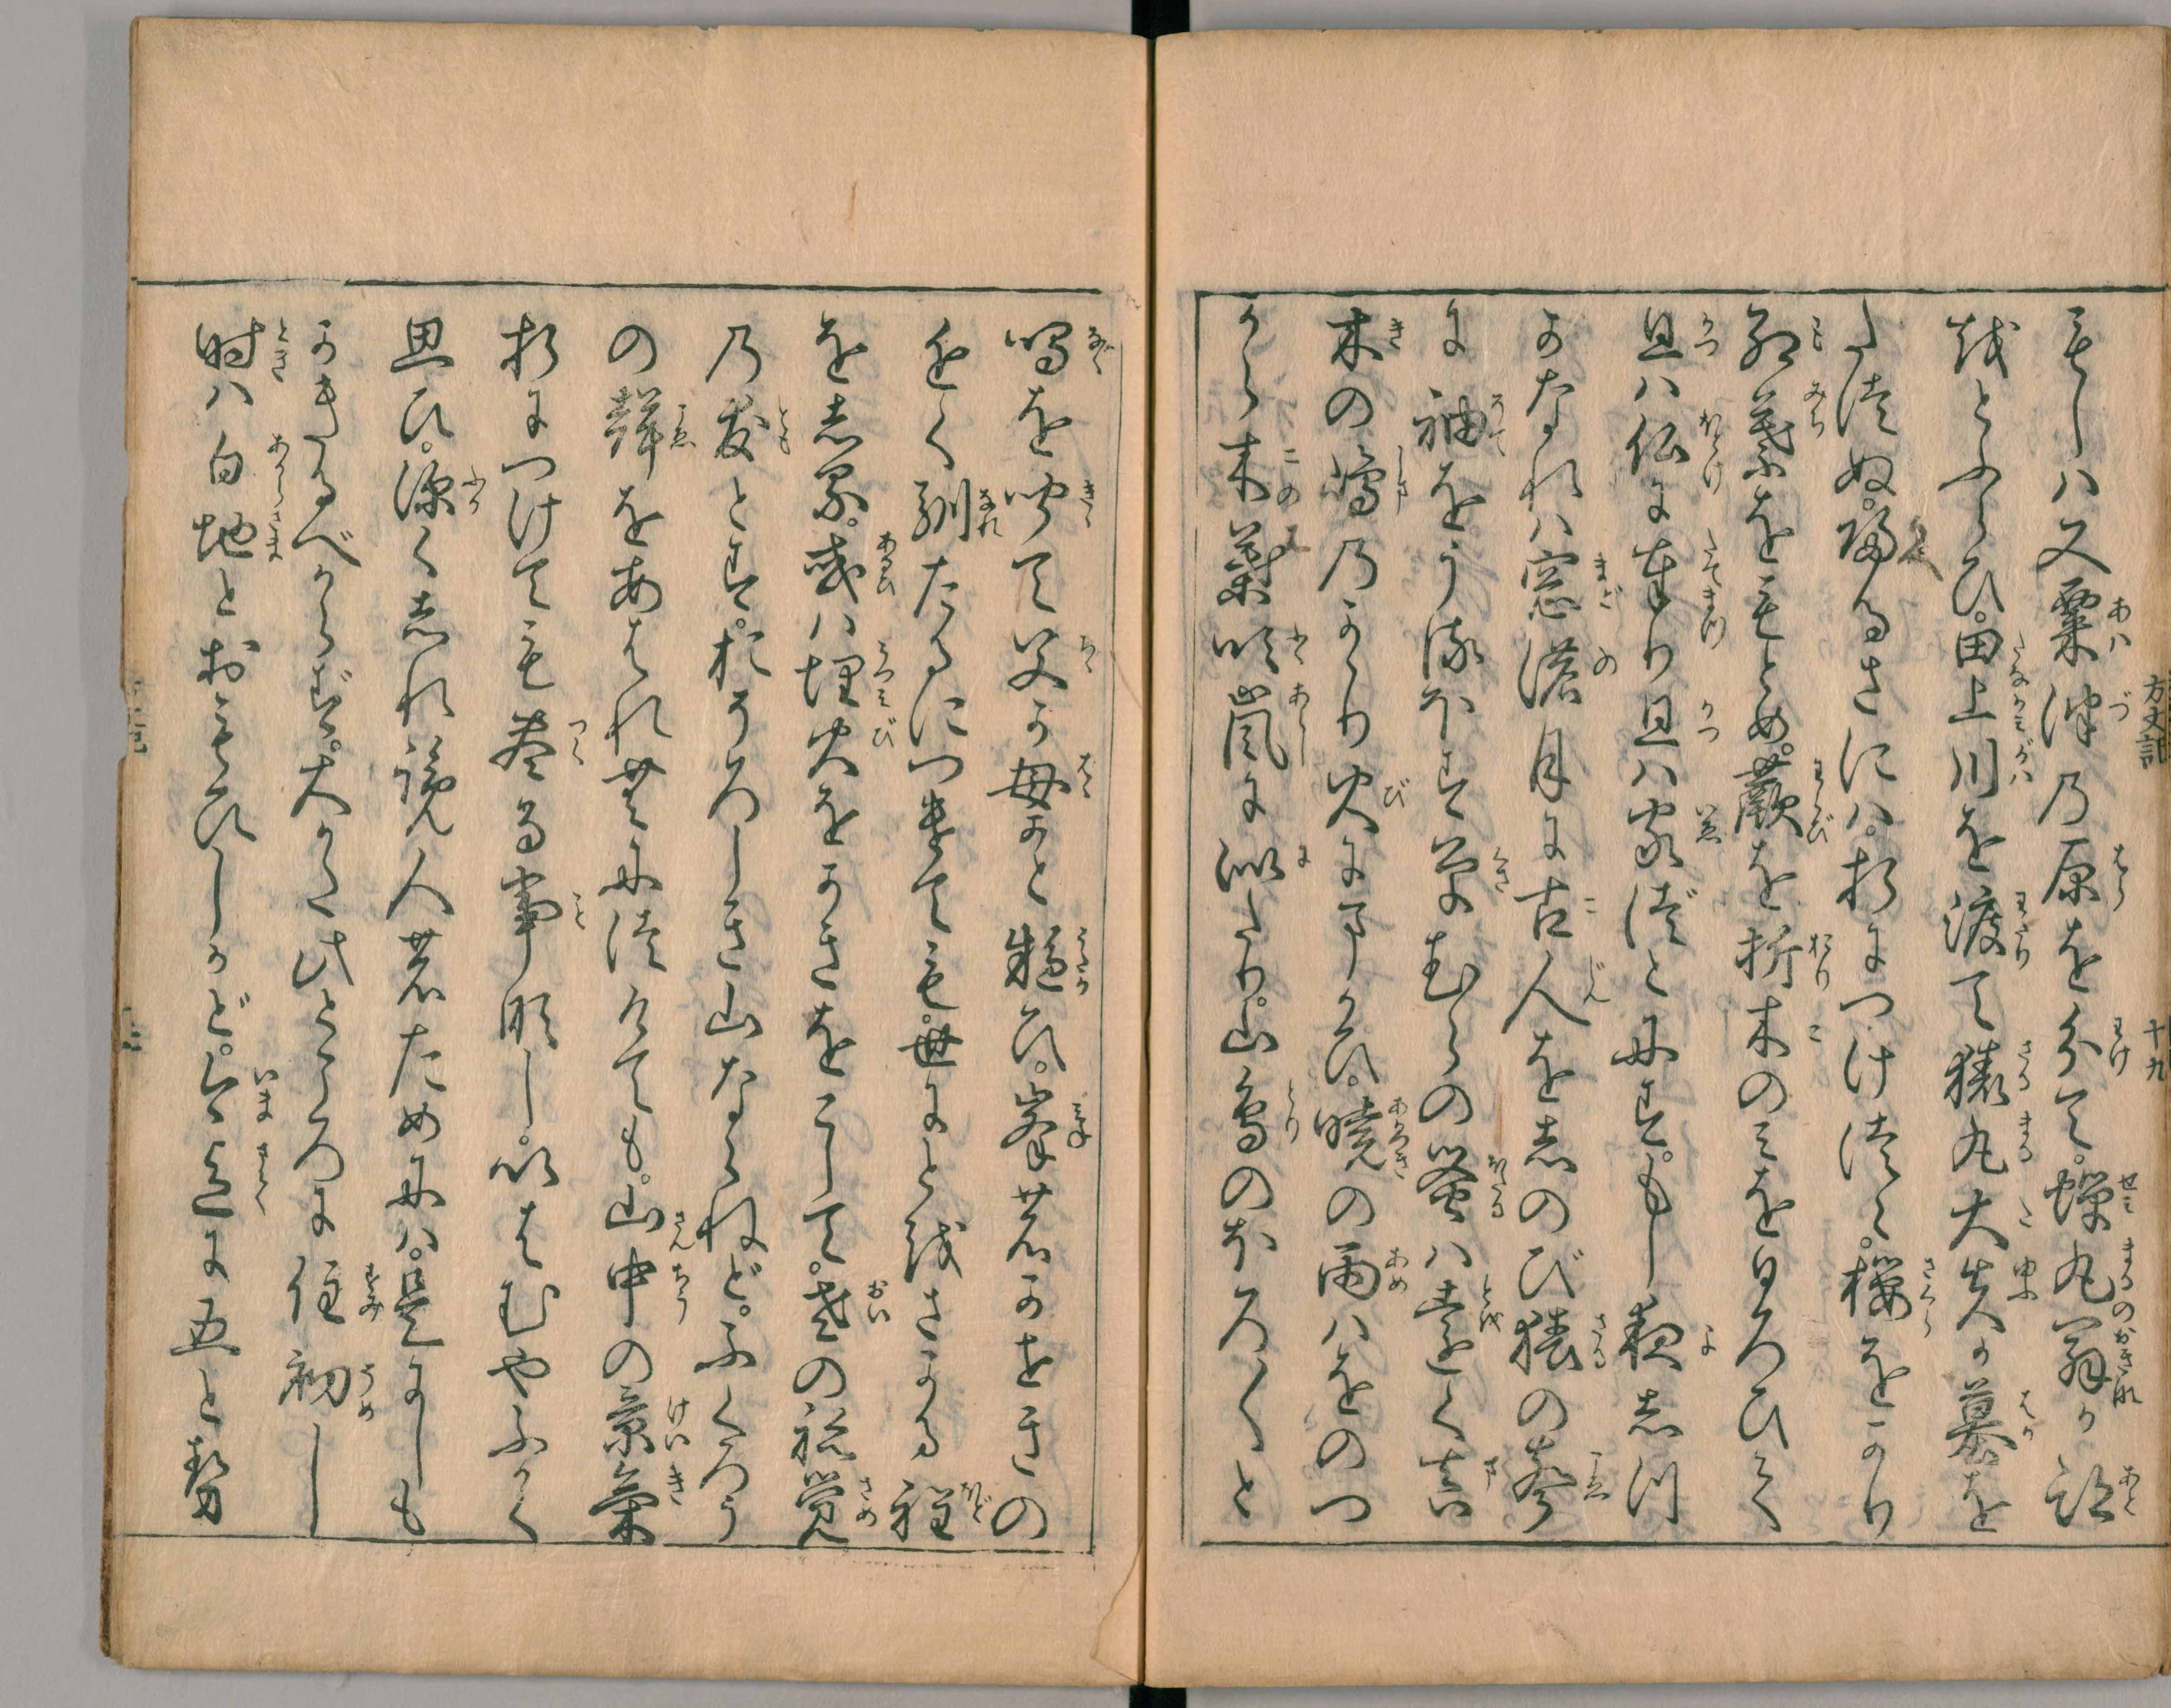 方丈記
十九
もしハ又粟津乃原を分て。蝉丸翁か跡
越とふらひ。田上川を渡て猿丸大夫か墓を
たつぬ。帰るさにハ折につけつゝ。桜をかり
紅葉をもとめ。蕨を折木のミをひろひて
且ハ仏に奉り且ハ家づとにす。もし夜志川
かなれハ窓濃月に古人を志のび猿の声
に袖をうるほす草むらの蛍ハ遠く真
木の嶋乃かゝり火にまかひ。暁の雨ハをのつ
から木葉吹嵐に似たり。山鳥のほろ〱と
鳴を聞て父か母かと疑ひ。峯のかせきの
近く馴たるにつけても。世にとをさかる程
を志る。或ハ埋火をかきをこして。老の寝覚
乃友とす。おそろしき山ならねど。ふくろう
の声をあはれむにつけても。山中の景気
折につけても尽る事那し。いはむやふかく
思ひ。深く志れ覧人のためにハ。是にしも
かきるべからず。大かた此ところに住初し
時ハ白地とおもひしかど。今迄に五とせ